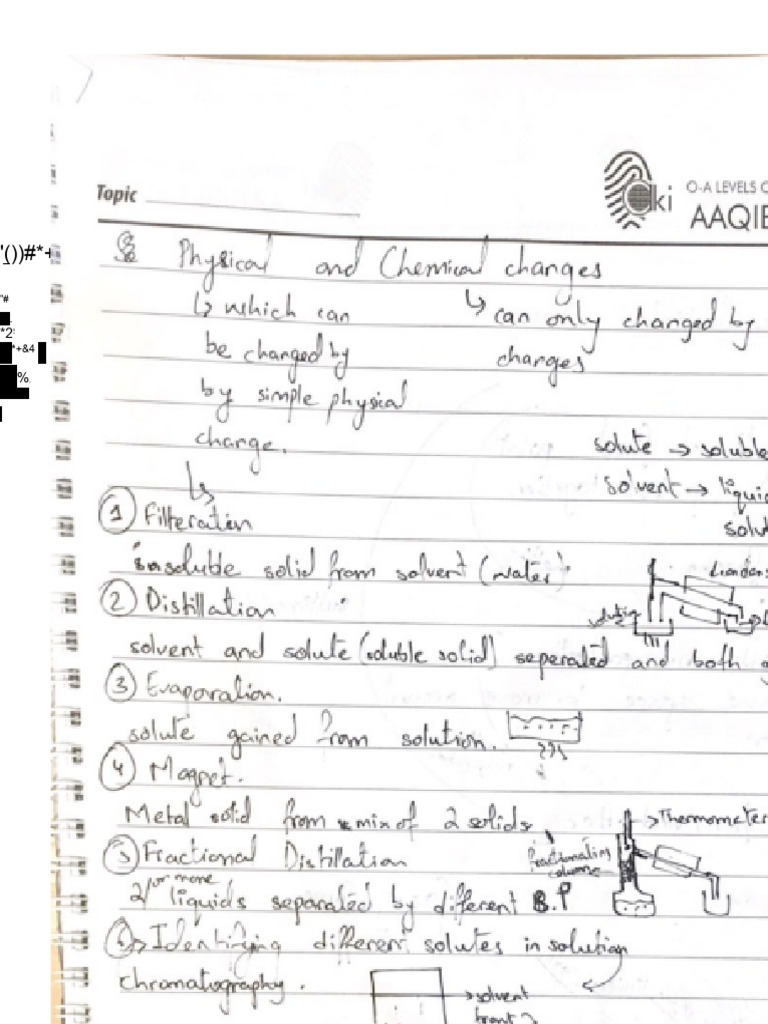 Topic
aki
O-A LEVELS
AAQIB
Physical and Chemical changes
↳ which can
↳ can only changed by
be changed by
changes
by simple physical
change.
solute → soluble
solvent → liquid
↳
① Filteration
insoluble solid from solvent (water)
② Distillation
solution
solvent and solute (soluble solid) seperated and both
③ Evaporation.
solute gained from solution.
④ Magnet.
Metal solid from mix of 2 solids
→ Thermometer
⑤ Fractional Distillation
fractionating
column
2 or more liquids separated by different B.P
⑥ → Identifying different solutes in solution
chromatography.
→ solvent
front